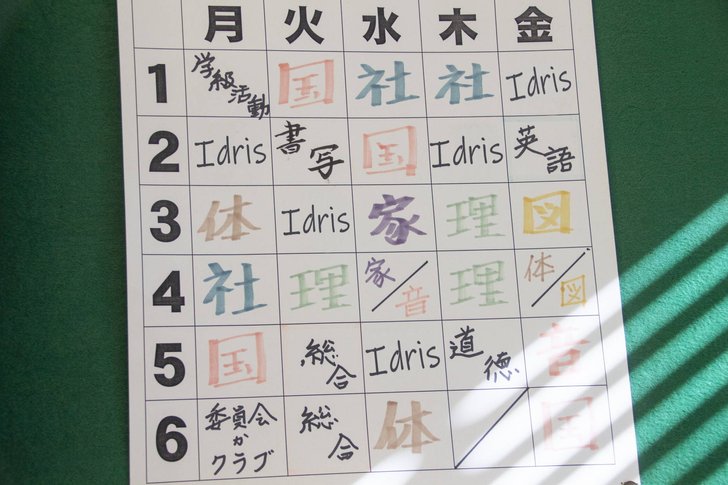 月 火 水 木 金
1 学級活動 国 社 社 Idris
2 Idris 書写 国 Idris 英語
3 体 Idris 家 理 図
4 社 理 家/音 理 体/図
5 国 総合 Idris 道徳 音
6 委員会かクラブ 総合 体 / 国